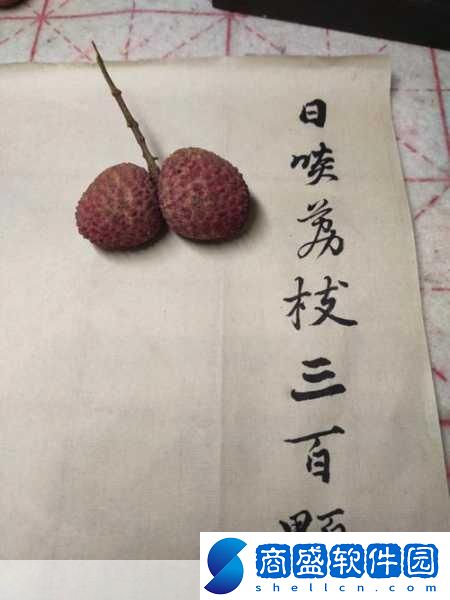 日啖荔枝三百颗
商盛软件园
shellcn.com